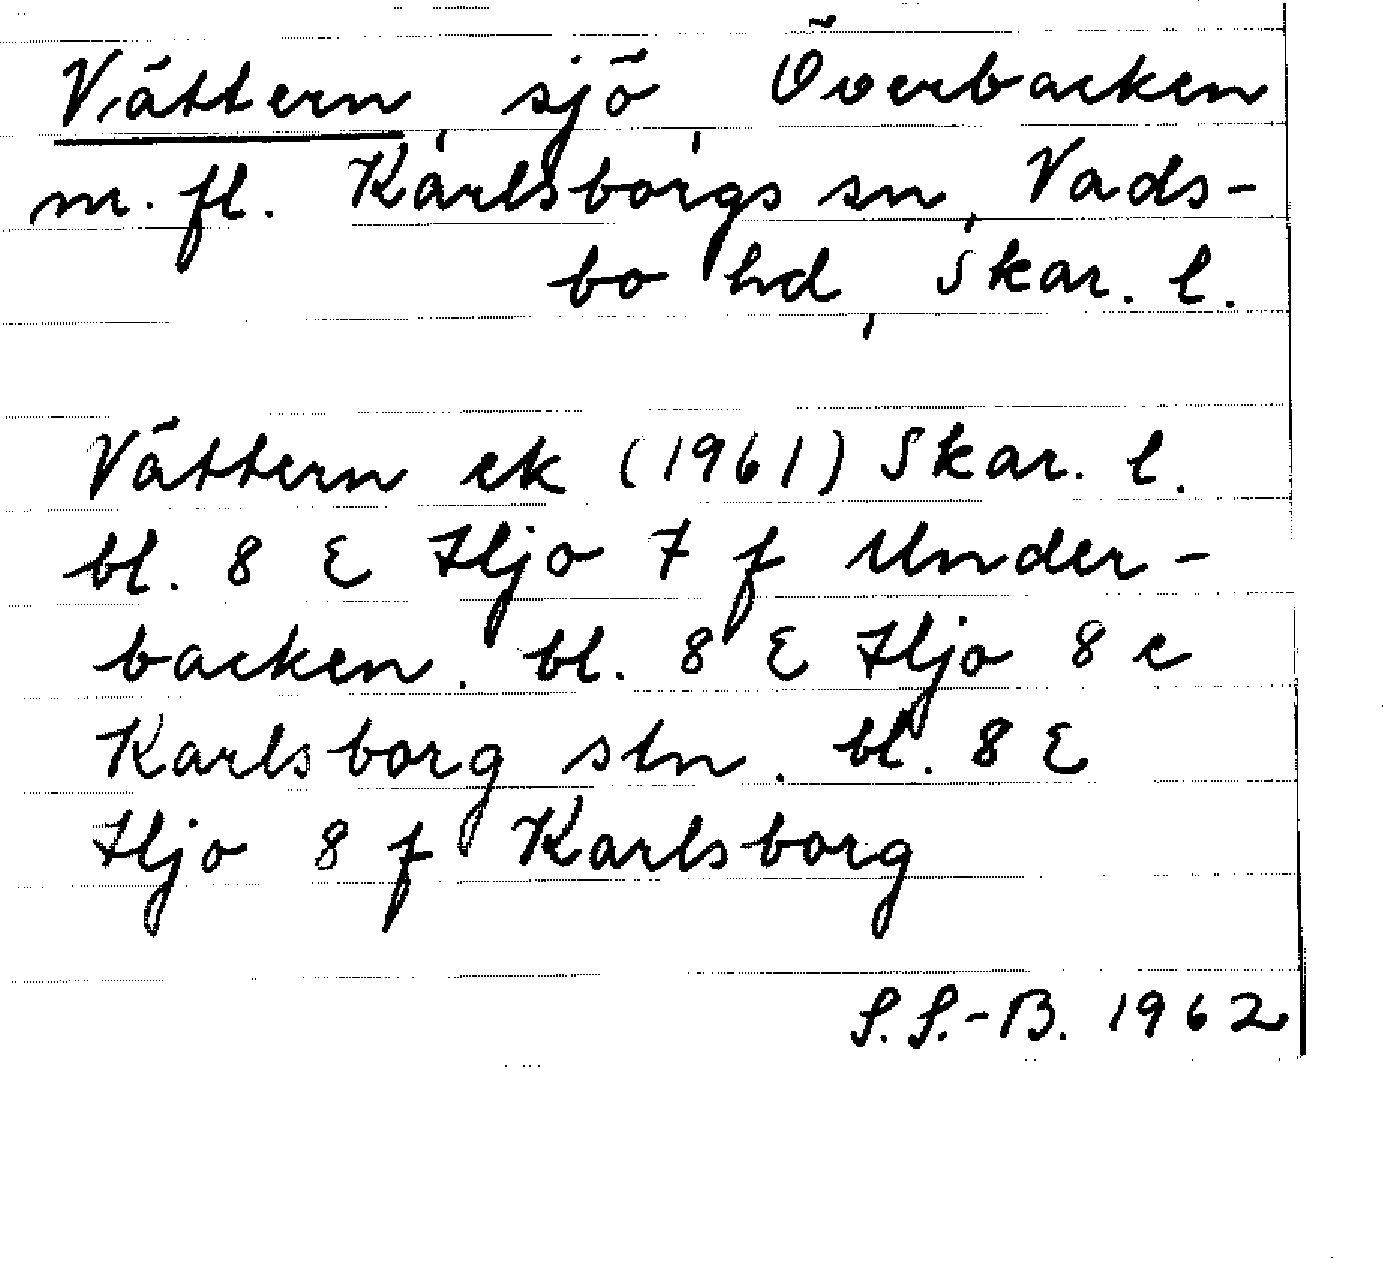 Vättern, sjö, Överbacken
m. fl. Karlsborgs sn, Vads-
bo hd, Skar. l.
Vättern ek (1961) Skar. l.
bl. 8 E Hjo 7 f Under-
backen. bl. 8 E Hjo 8 e
Karlsborg stn. bl. 8 E
Hjo 8 f Karlsborg
S. S.-B. 1962